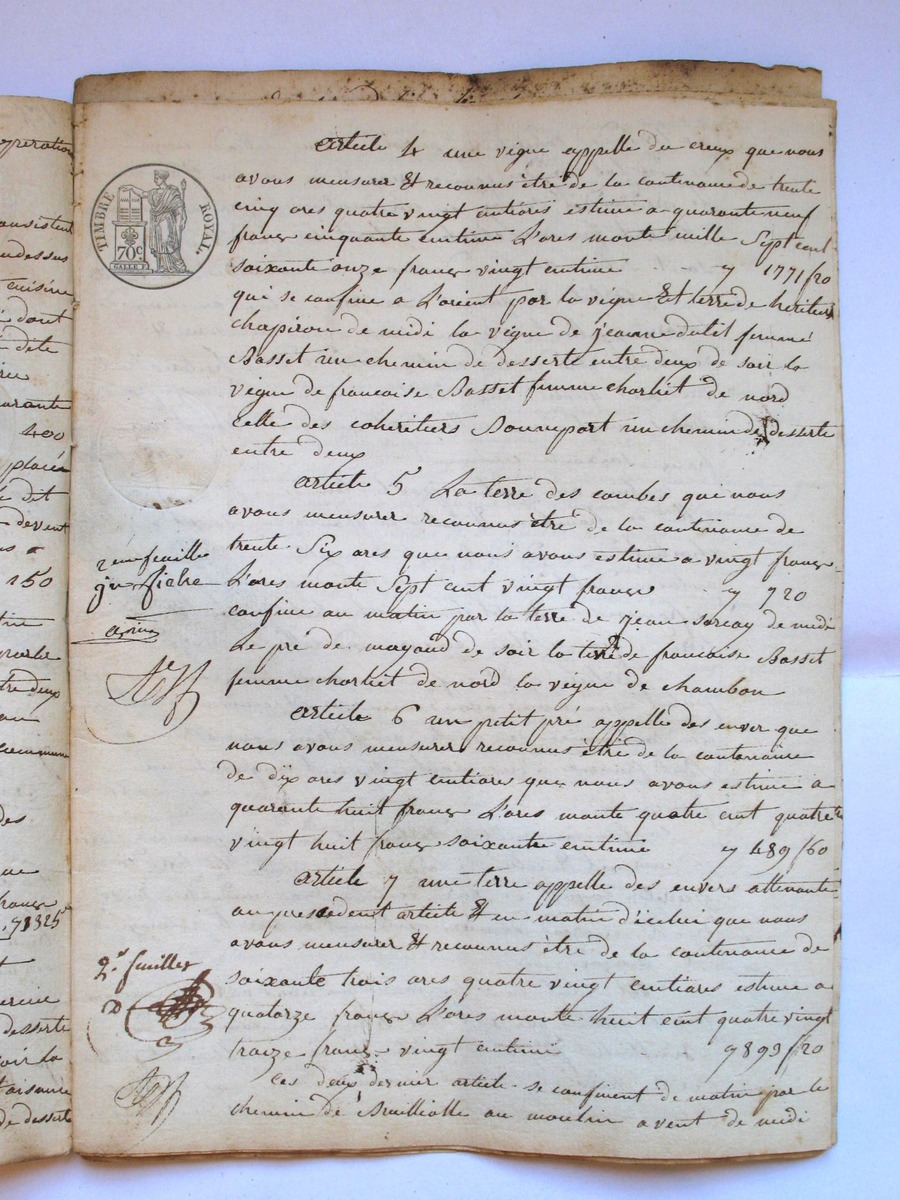 operation
consistent
au dessus
cuisine
dont
dite
quarante
400
placée
dit
devent
150
tre deux
des
71325
desserte
soir la
de desserte
TIMBRE ROYAL.
70c
article 4 une vigne appelle du creux que nous
avons mensurer & reconnus être de la contenance de trente
cinq ares quatre vingt entiares estime a quarante neuf
franc cinquante centime L'ares monte mille Sept cent
soixante onze franc vingt centime 7 1771/20
qui se confine a L'orient par la vigne & terre de heritiers
chapiron de midi la vigne de jeanne dutil femme
Basset un chemin de desserte entre deux de soir la
vigne de francoise Basset femme charliet de nord
Celle des coheritiers Bonneport un chemin de desserte
entre deux
article 5 La terre des combes que nous
avons mensurer reconnus être de la contenance de
trente Six ares que nous avons estime a vingt franc
L'ares monte Sept cent vingt franc 7 720
confine au matin par la terre de jean de midi
Le pré de mayaud de soir la terre de francoise Basset
femme charliet de nord la vigne de chambon
article 6 un petit pré appelle des enver que
nous avons mensurer reconnus être de la contenance
de dix ares vingt centiares que nous avons estime a
quarente huit franc L'ares monte quatre cent quatre
vingt huit franc soixante centime 7 489/60
article 7 une terre appelle des envers attenante
au precedent article & en matin d'icelui que nous
avons mensurer & reconnus être de la contenance de
soixante trois ares quatre vingt centiares estime a
quatorze franc L'ares monte huit cent quatre vingt
traize franc vingt centime 7 893/20
Ces deux dernier article se confinent de matin par le
chemin de au moulin a vent de midi
feuille
2.e feuillet